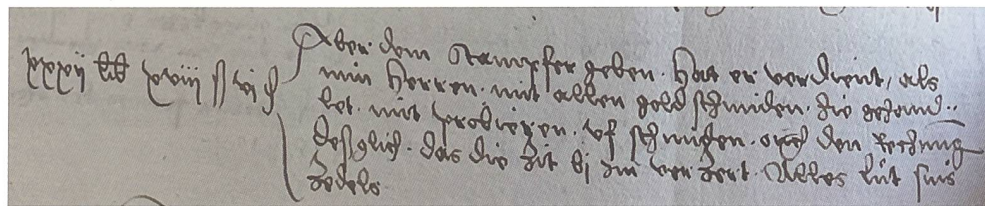 xxxij lib xviij ß vj d
Aber dem Stampfer geben. Hat er verdient, als
min Herren. mit allen goldschmiden. die gehand
let. mit probieren. uf schniden. ouch den Rechnung
desglich. das die zit bj im verzert. Alles lut sins
zedels